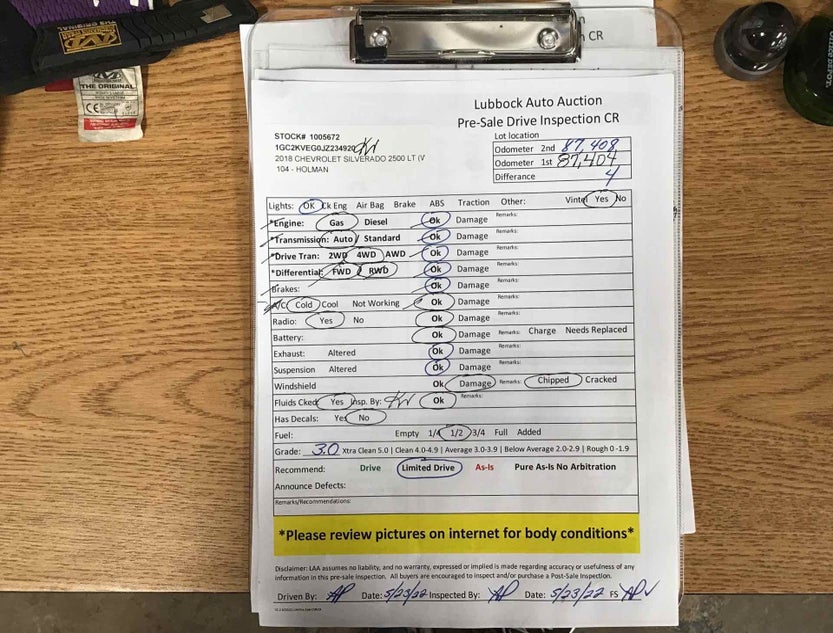 THE ORIGINAL
CE
CR
Lubbock Auto Auction
Pre-Sale Drive Inspection CR
STOCK# 1005672
1GC2KVEG0JZ234920 KW
2018 CHEVROLET SILVERADO 2500 LT (V
104 - HOLMAN
Lot location
Odometer 2nd 87,408
Odometer 1st 87,404
Differance 4
Lights: OK Ck Eng Air Bag Brake ABS Traction Other: Vinte Yes No
*Engine: Gas Diesel Ok Damage Remarks:
*Transmission: Auto / Standard Ok Damage Remarks:
*Drive Tran: 2WD 4WD AWD Ok Damage Remarks:
*Differential: FWD / RWD Ok Damage Remarks:
Brakes: Ok Damage Remarks:
A/C Cold Cool Not Working Ok Damage Remarks:
Radio: Yes No Ok Damage Remarks:
Battery: Ok Damage Remarks: Charge Needs Replaced
Exhaust: Altered Ok Damage Remarks:
Suspension Altered Ok Damage Remarks:
Windshield Ok Damage Remarks: Chipped Cracked
Fluids Cked Yes Insp. By: KW Ok Remarks:
Has Decals: Yes No
Fuel: Empty 1/4 1/2 3/4 Full Added
Grade: 3.0 Xtra Clean 5.0 | Clean 4.0-4.9 | Average 3.0-3.9 | Below Average 2.0-2.9 | Rough 0 -1.9
Recommend: Drive Limited Drive As-Is Pure As-Is No Arbitration
Announce Defects:
Remarks/Recommendations:
*Please review pictures on internet for body conditions*
Disclaimer: LAA assumes no liability, and no warranty, expressed or implied is made regarding accuracy or usefulness of any
information in this pre-sale inspection. All buyers are encouraged to inspect and/or purchase a Post-Sale Inspection.
Driven By: AP Date: 5/23/22 Inspected By: AP Date: 5/23/22 FS AP